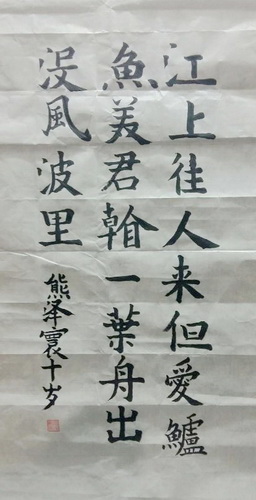 江上往人来但愛鱸
魚美君韽一葉舟出
没風波里
熊泽寰十岁